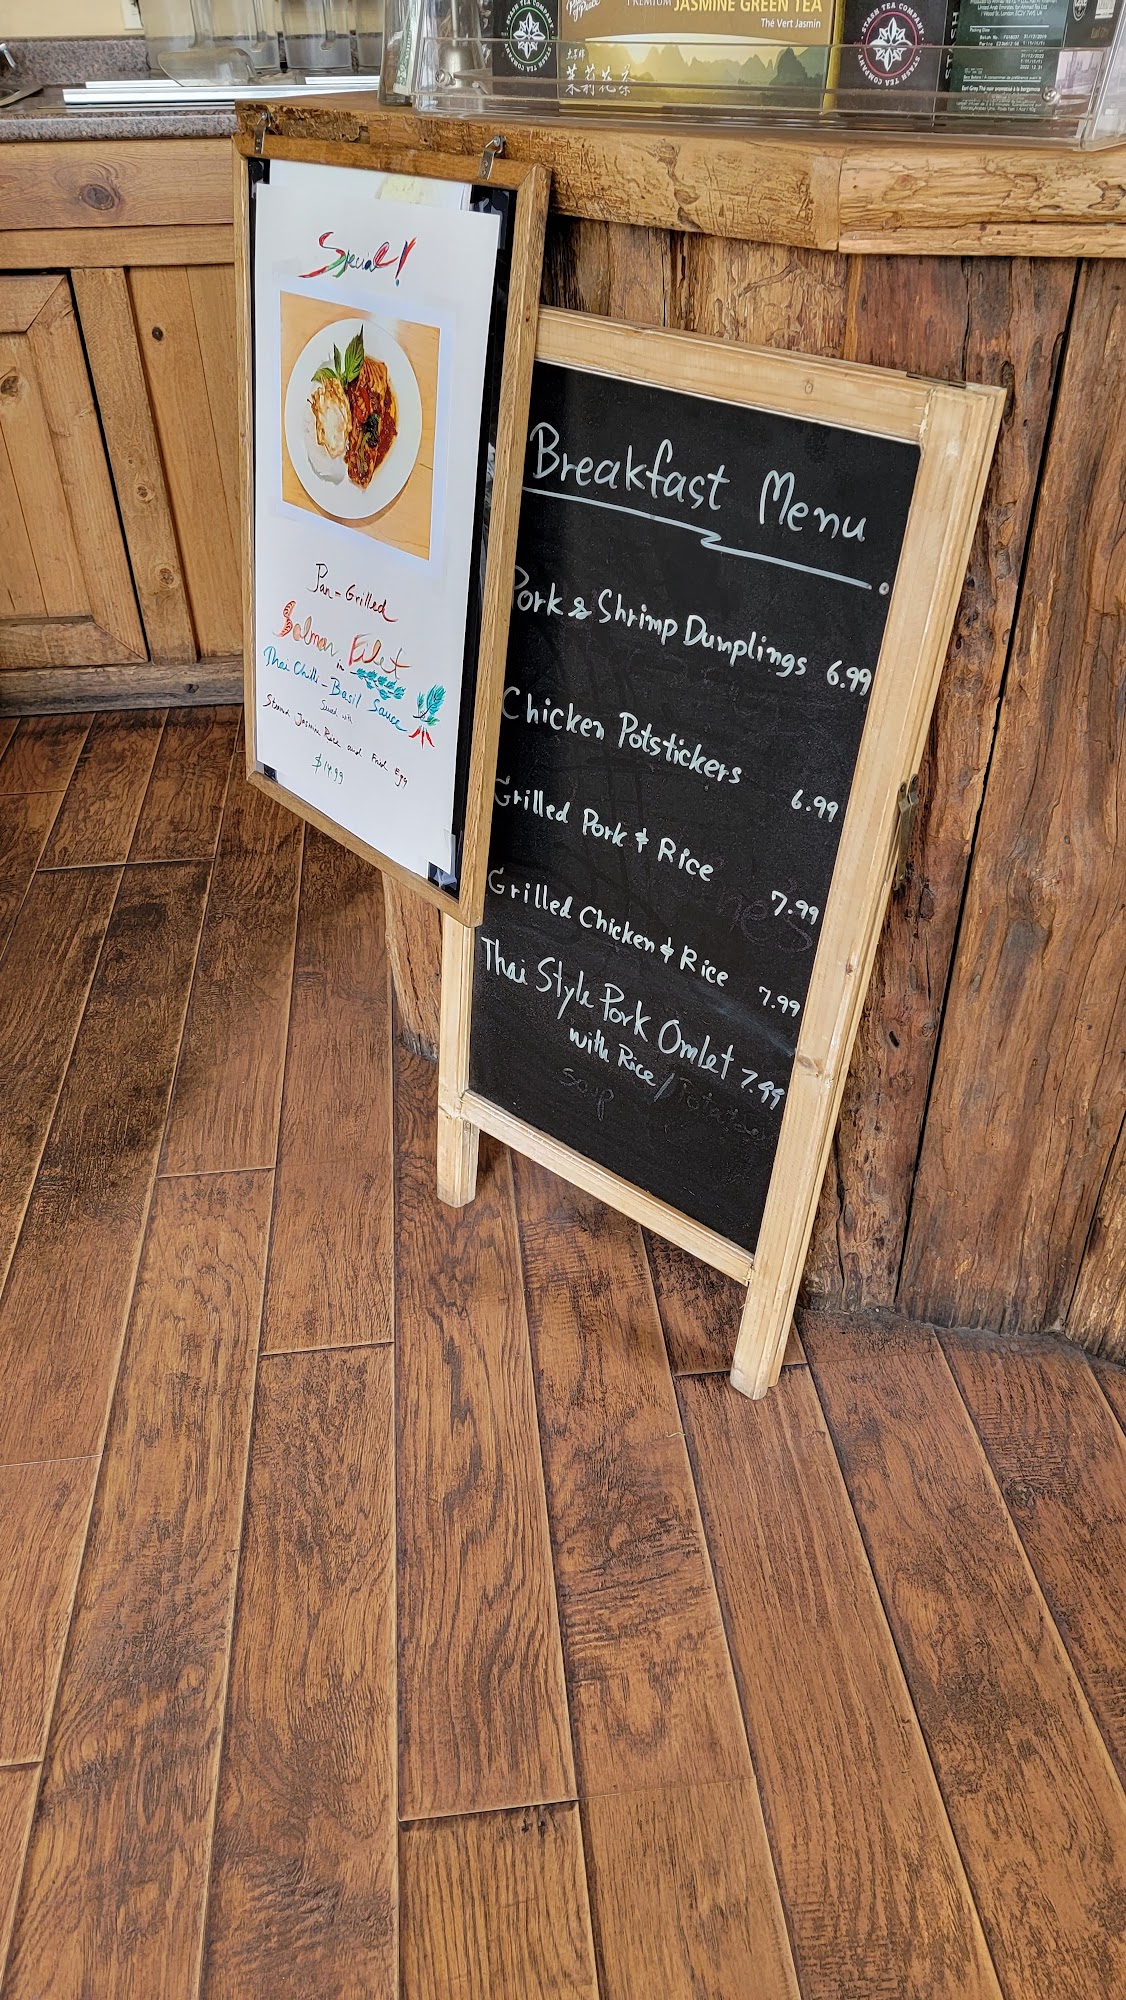 STASH TEA COMPANY
PREMIUM JASMINE GREEN TEA
Thé Vert Jasmin
茉莉花茶
STASH TEA COMPANY
Special!
Pan-Grilled
Salmon Filet
in
Thai Chilli-Basil Sauce
Served with
Steamed Jasmine Rice and Fried Egg
$14.99
Breakfast Menu
Pork & Shrimp Dumplings 6.99
Chicken Potstickers 6.99
Grilled Pork & Rice 7.99
Grilled Chicken & Rice 7.99
Thai Style Pork Omlet 7.99
with Rice/
Soup